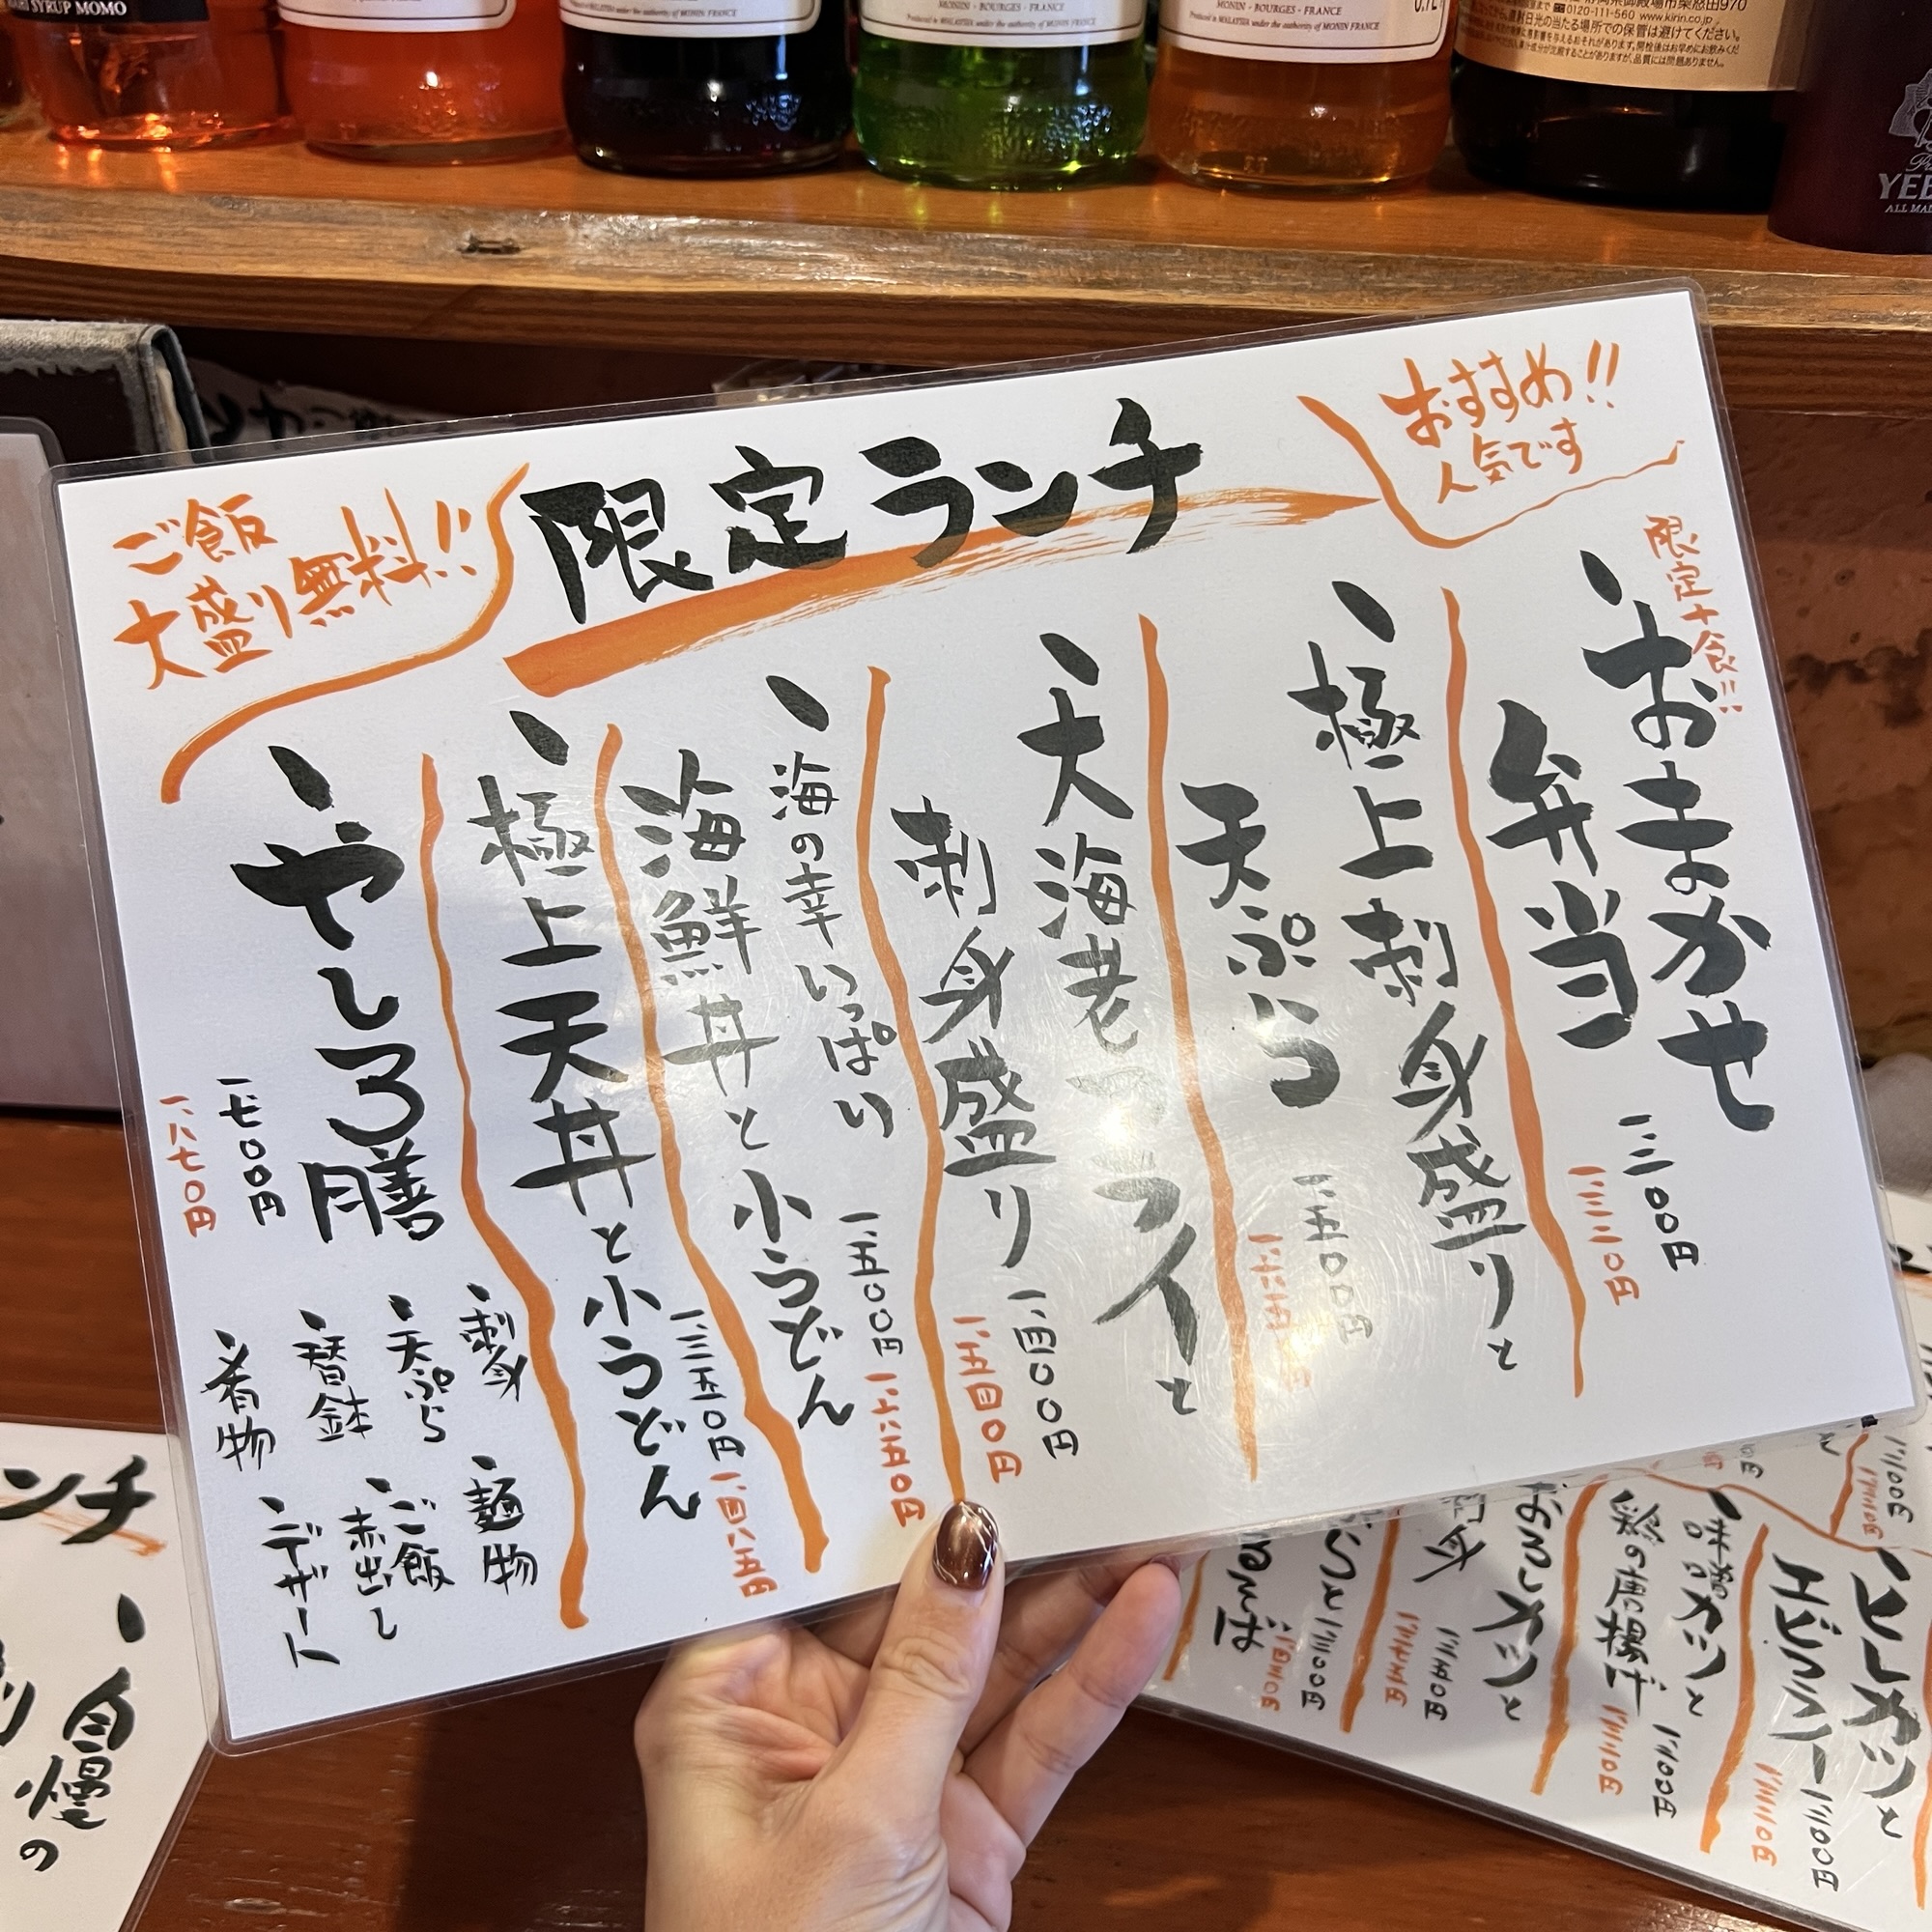 SYRUP MOMO
MONIN · BOURGES · FRANCE
Produced in MALAYSIA under the authority of MONIN FRANCE
0120-111-560 www.kirin.co.jp
直射日光の当たる場所での保管は避けてください。
ALL MA
限定ランチ
おすすめ!!
人気です
ご飯
大盛り無料!!
限定十食!!
、おまかせ
弁当
一、二〇〇円
一、三二〇円
、極上刺身盛りと
天ぷら
一、五〇〇円
、大海老フライと
刺身盛り
一、四〇〇円
一、五四〇円
、海の幸いっぱい
海鮮丼と小うどん
一、五〇〇円
一、六五〇円
、極上天丼と小うどん
一、三五〇円
一、四八五円
、やしろ膳
一、七〇〇円
一、八七〇円
、刺身
、天ぷら
、替鉢
、肴物
、麺物
、ご飯
、赤出し
、デザート
ンチ
、自慢の
ヒレカツと
エビフライ
、味噌カツと
鶏の唐揚げ
おろしカツと
刺身
るそば